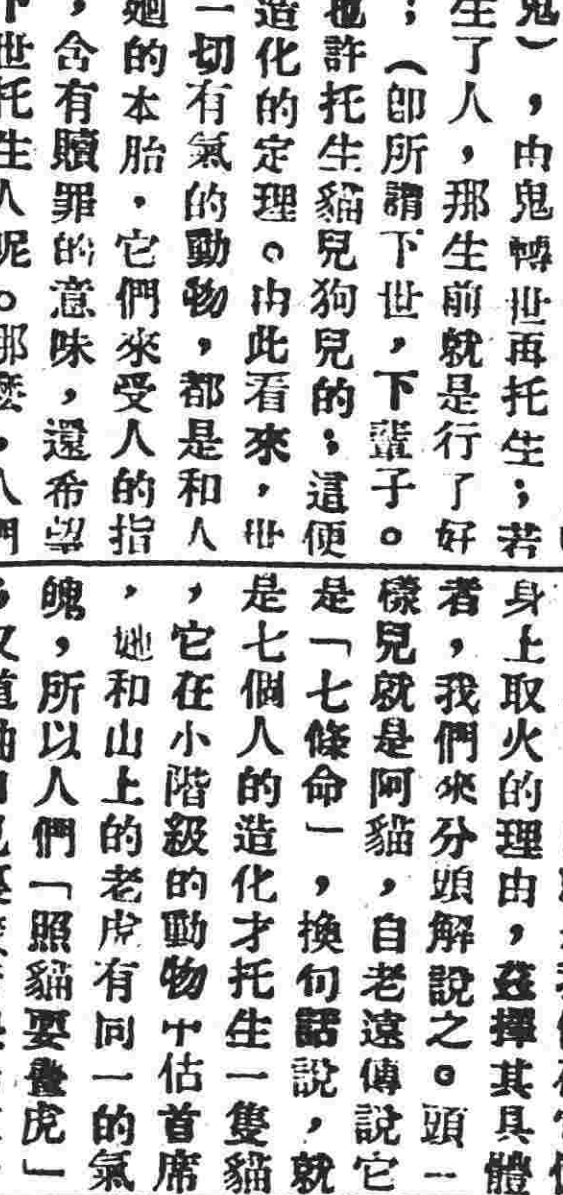 鬼），由鬼轉世再托生；若
生了人，那生前就是行了好
；（卽所謂下世，下輩子。
也許托生貓兒狗兒的；這便
造化的定理。由此看來，世
一切有氣的動物，都是和人
廻的本胎，它們來受人的指
，含有贖罪的意味，還希望
下世托生人呢。那麼，人們
身上取火的理由，茲擇其具體
者，我們來分頭解說之。頭一
樣兒就是阿貓，自老遠傳說它
是「七條命」，換句話說，就
是七個人的造化才托生一隻貓
，它在小階級的動物中估首席
，她和山上的老虎有同一的氣
魄，所以人們「照貓要畫虎」